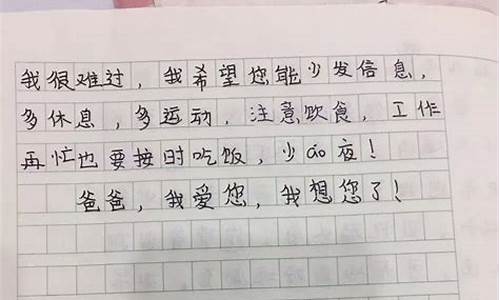 我很难过，我希望您能少发信息，
多休息，多运动，注意饮食，工作
再忙也要按时吃饭，少ǎo夜！
爸爸，我爱您，我想您了！